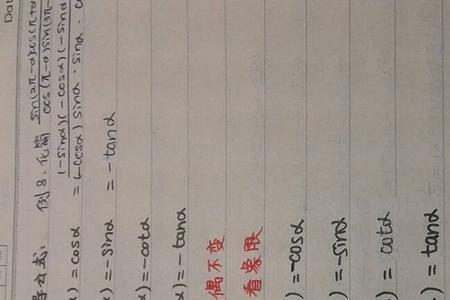 Dat
导公式:
α) = cosα
α) = -sinα
α) = -cotα
α) = -tanα
偶不变
看象限
) = -cosα
) = -sinα
) = cotα
) = tanα
例8:化简 sin(2π-α)cos(π+α
cos(π-α)sin(3π-
= (-sinα)(-cosα)(-sinα
(-cosα) sinα · sinα ·
= -tanα